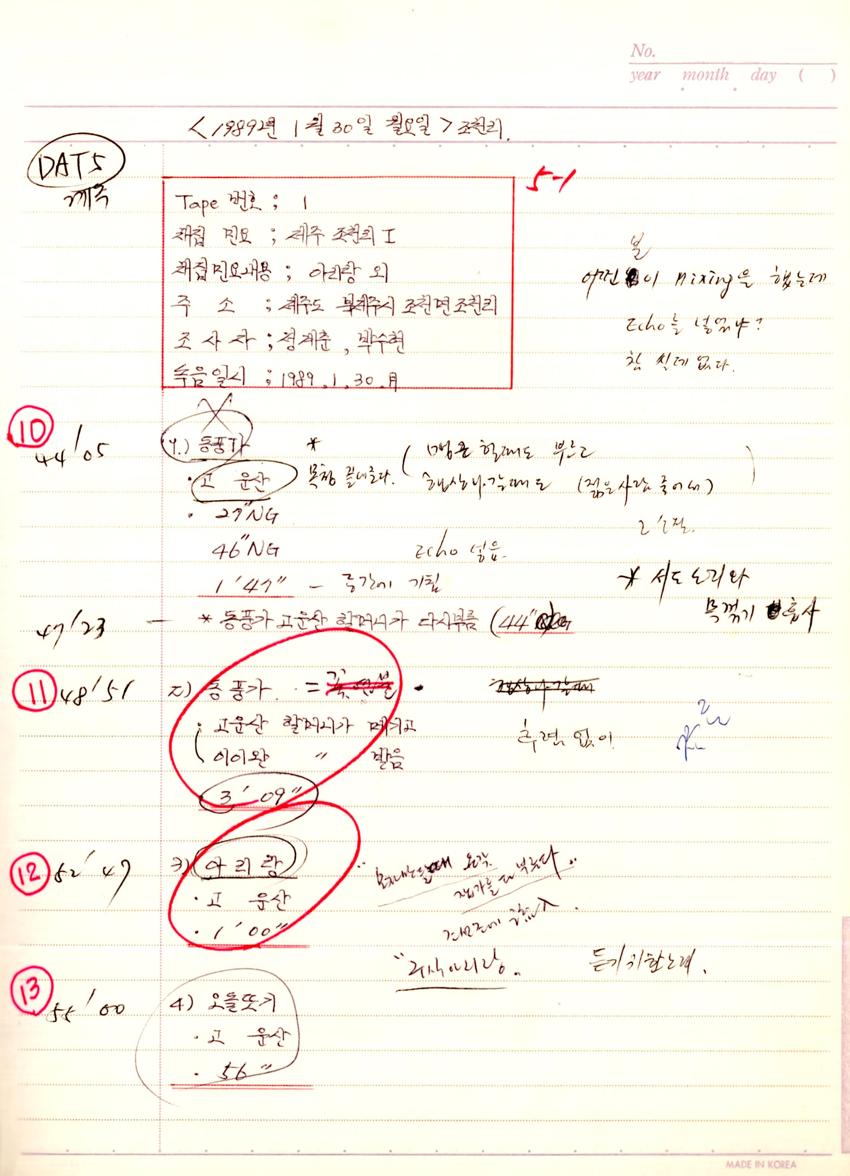 No.
year month day ( )
< 1989년 1월 30일 월요일 > 조천리.
DAT5
제주
5-1
Tape 번호 ; 1
채집 민요 ; 제주 조천리 I
채집민요내용 ; 아리랑 외
주 소 ; 제주도 북제주시 조천면 조천리
조 사 자 ; 정재춘 , 박수현
녹음일시 ; 1989. 1. 30. 月
불
어떤 이 mixing을 했는데
Echo를 넣었나?
참 쓸데없다.
10
44'05
1.) 동풍가 *
· 고 운산
부르고
(젊은사람 죽어서)
· 29"NG
46"NG Echo 넣음.
1'47" – 중간에 기침
* 서도소리와
목꺾기 흡사
47'23 — * 동풍가 고운산 할머니가 다시부름 (44"
11
48'51
2) 동풍가. =
· 고운산 할머니가 메기고
이이완 " 받음
후렴 없이.
3'09"
12
52'47
3) 아리랑
· 고 운산
· 1'00"
"구식아리랑. 듣기위한노래.
13
55'00
4) 오돌또기
· 고 운산
· 56"
MADE IN KOREA